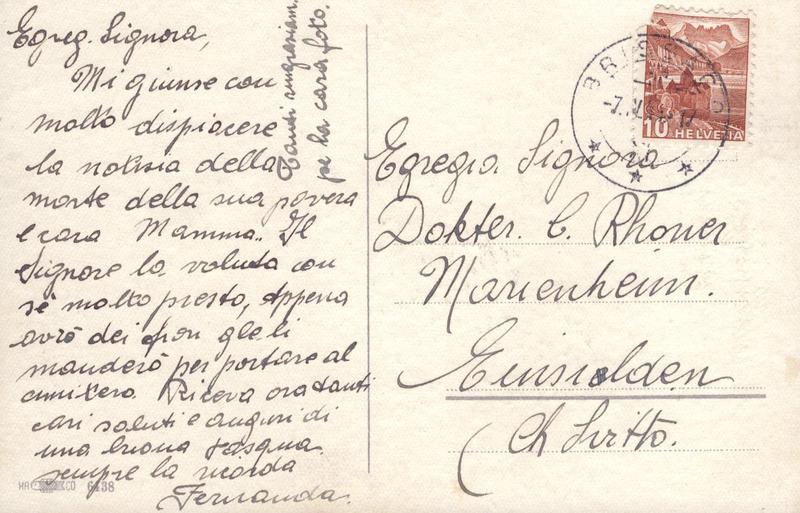 Egreg. Signora,
Mi giunse con
molto dispiacere
la notisia della
morte della sua povera
e cara Mamma.. Il
Signore la voluta con
sé molto presto, appena
avrò dei fiori glieli
manderò per portare al
cimitero. Riceva ora tanti
cari saluti e auguri di
una buona Pasqua.
sempre la ricorda
Fernanda.
Tanti ringraziam.
pe la cara foto.
HELVETIA
10
BRISSAGO
Egregia Signora
Dokter. C. Rhoner
Marienheim.
Einsielden
Ch Svitto.
6438